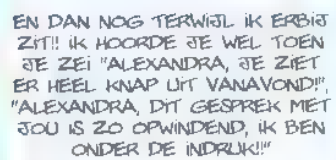 EN DAN NOG TERWIJL IK ERBIJ
ZIT!! IK HOORDE JE WEL TOEN
JE ZEI "ALEXANDRA, JE ZIET
ER HEEL KNAP UIT VANAVOND!",
"ALEXANDRA, DIT GESPREK MET
JOU IS ZO OPWINDEND, IK BEN
ONDER DE INDRUK!!"